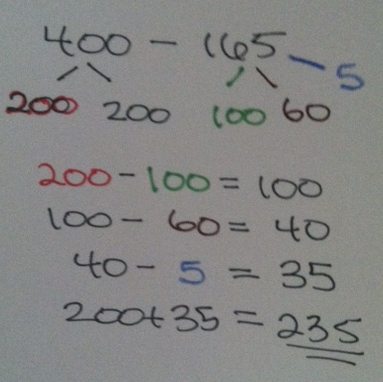 400 - 165 - 5
200 200 100 60
200 - 100 = 100
100 - 60 = 40
40 - 5 = 35
200 + 35 = 235